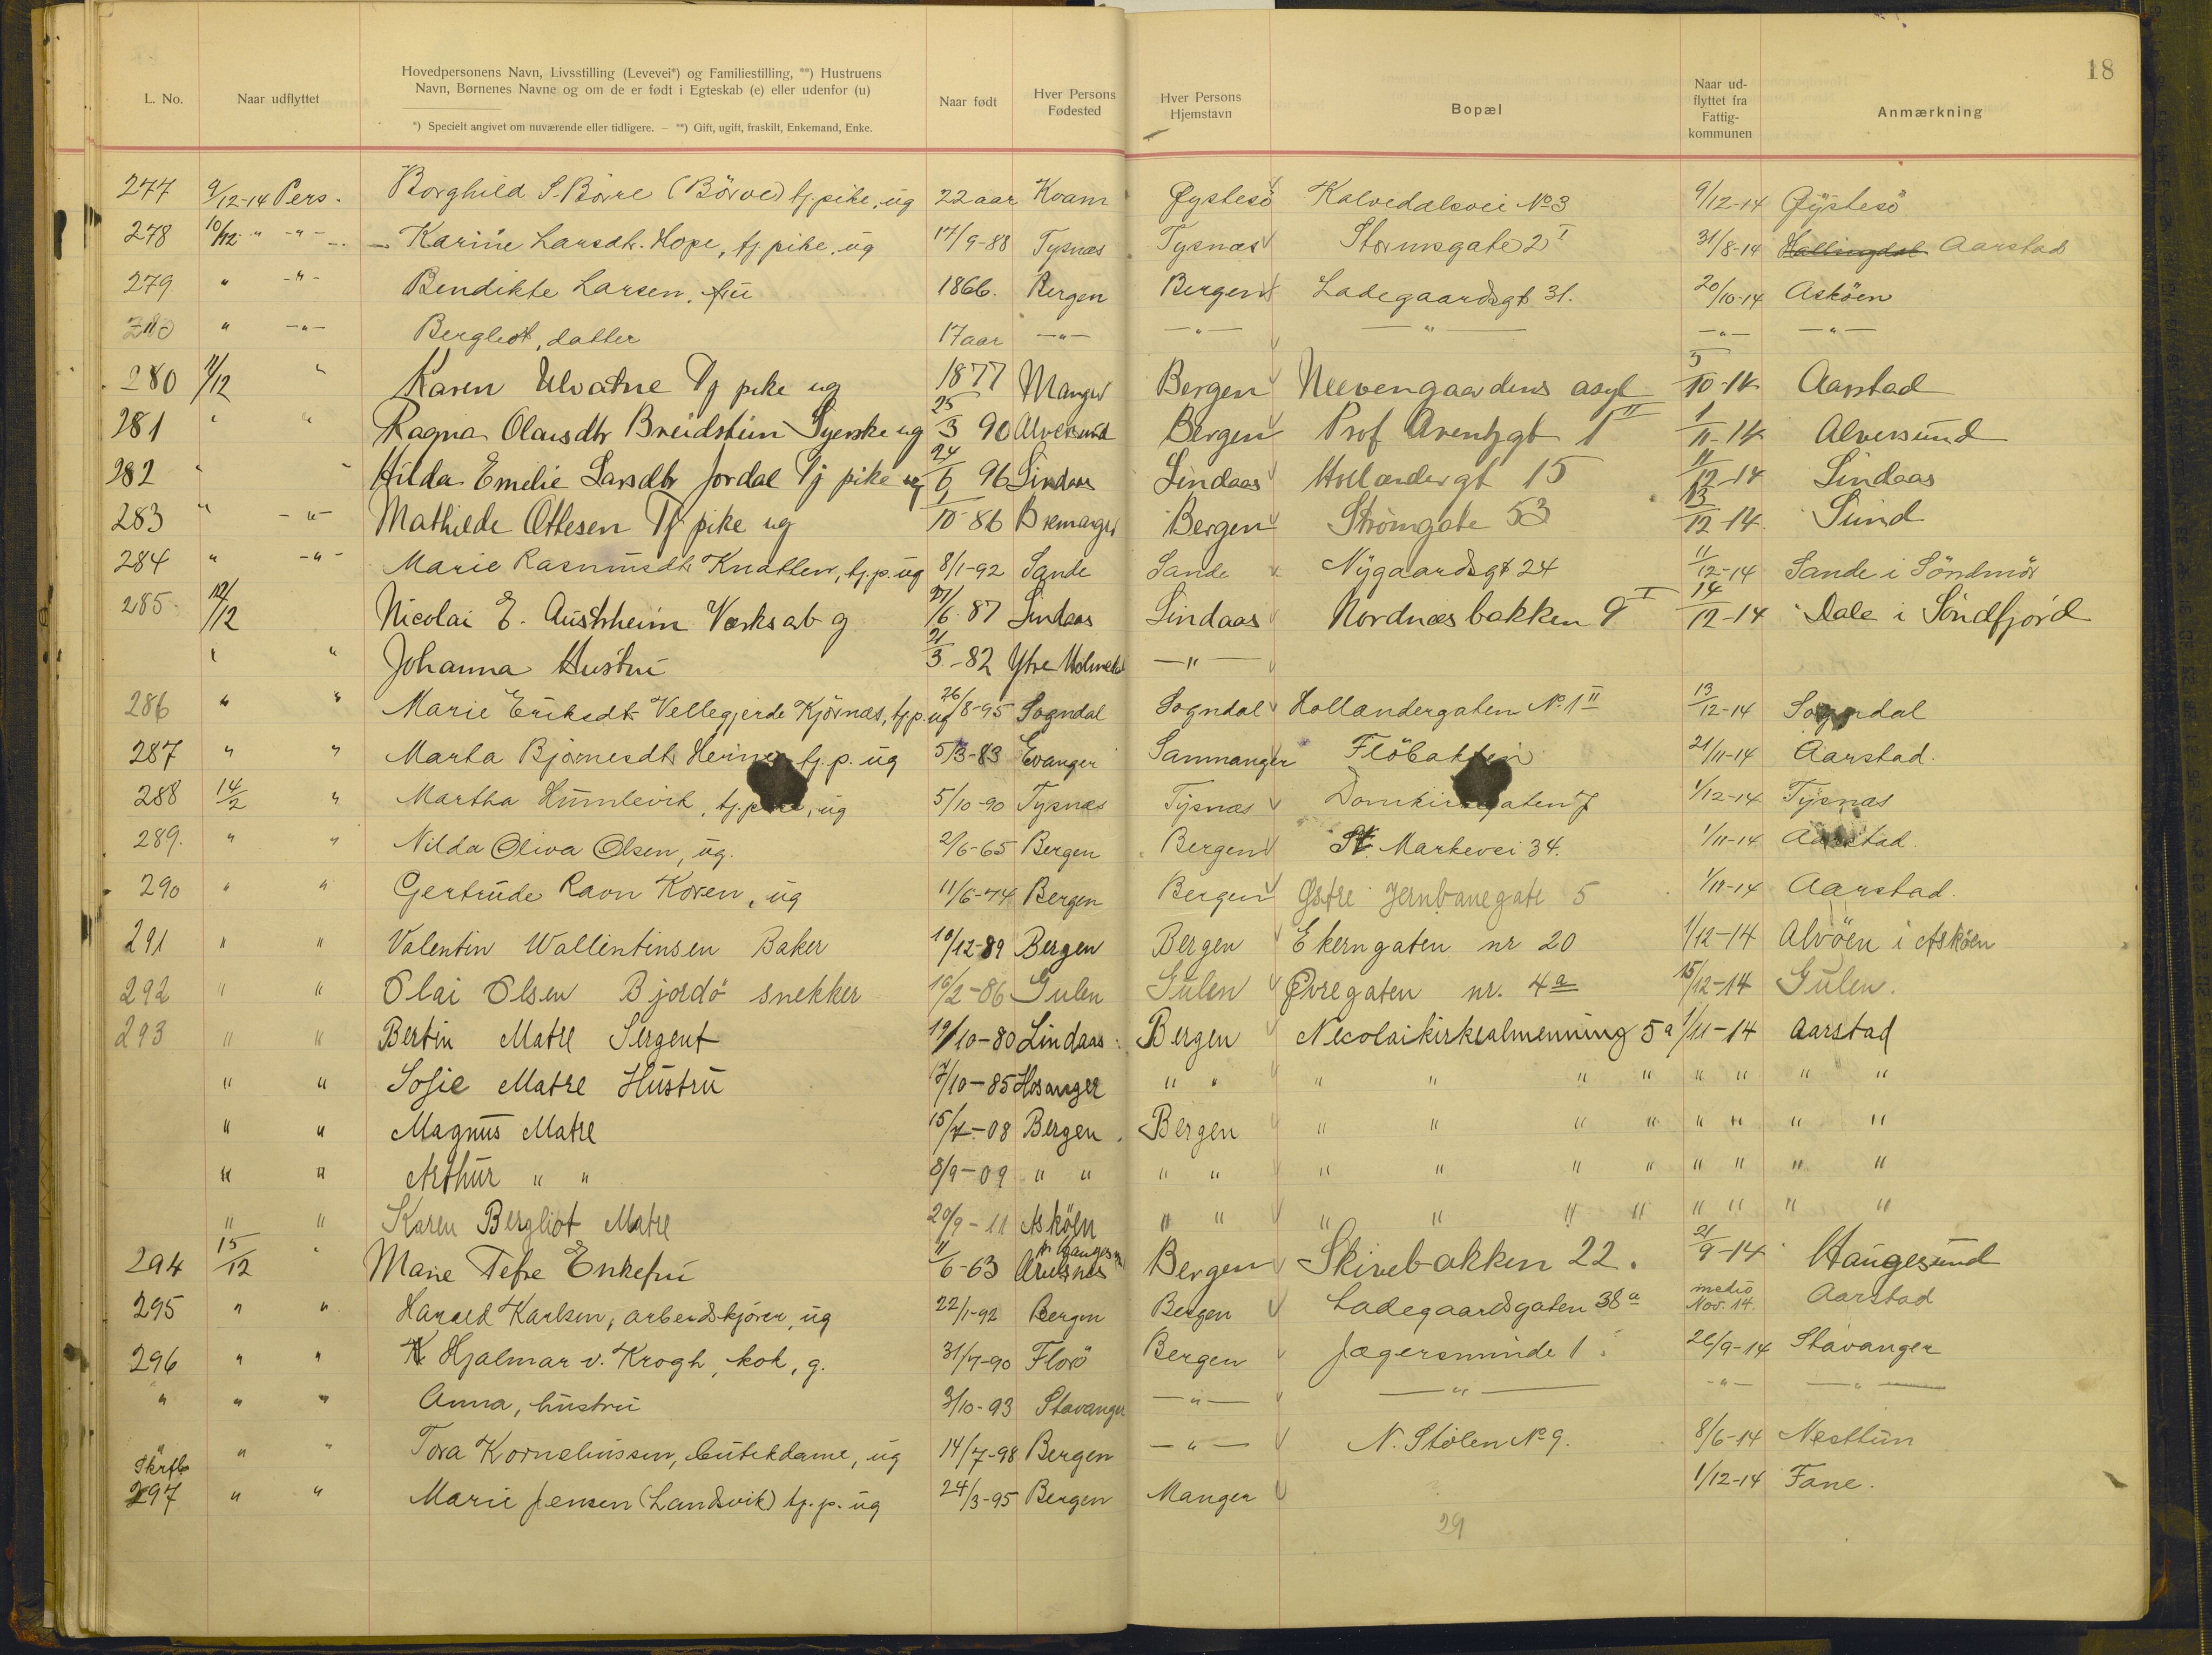 18
L. No.
Naar udflyttet
Hovedpersonens Navn, Livsstilling (Levevei*) og Familiestilling, **) Hustruens
Navn, Børnenes Navne og om de er født i Egteskab (e) eller udenfor (u)
*) Specielt angivet om nuværende eller tidligere. — **) Gift, ugift, fraskilt, Enkemand, Enke.
Naar født
Hver Persons
Fødested
Hver Persons
Hjemstavn
Bopæl
Naar ud-
flyttet fra
Fattig-
kommunen
Anmærkning
277 9/12-14 Pers. Borghild S. Börve (Börve) tj. pike, ug 22 aar Kvam Øystesö Kalvedalsvei No 3 9/12-14 Øystesö
278 10/12 " -"- Karine Larsdt. Hope, tj. pike, ug 17/9-88 Tysnæs Tysnæs Stormsgate 2 I 31/8-14 Hallingdal Aarstad
279 " -"- Bendikte Larsen, fru 1866. Bergen Bergen Ladegaardsgt 31. 20/10-14 Asköen
280 " -"- Bergliot, datter 17 aar -"- -"- -"- -"- -"-
280 11/12 " Karen Ulvatne Tj pike ug 1877 Manger Bergen Neevengaardens asyl 5/10-14 Aarstad
281 " " Ragna Olausdtr Breidstein Syerske ug 25/3 90 Alversund Bergen Prof Arentzgt 1 II 1/11-14 Alversund
282 " " Hilda Emelie Larsdtr Jordal Tj pike ug 24/6 96 Lindaas Lindaas Hollendergt 15 11/12-14 Lindaas
283 " -"- Mathilde Ottesen Tj pike ug 1/10-86 Bremanger Bergen Strömgate 53 13/12-14 Sund
284 " -"- Marie Rasmusdtr Knatten, tj. p. ug 8/1-92 Sande Sande Nygaardsgt 24 11/12-14 Sande i Söndmör
285. 12/12 Nicolai E. Austrheim Verksarb g 27/6-87 Lindaas Lindaas Nordnæsbakken 9 I 14/12-14 Dale i Söndfjord
" " Johanna Hustru 21/3-82 Ytre Holmedal -"-
286 " " Marie Eriksdtr Vellegjerde Kjörnæs, tj. p. ug 26/8-95 Sogndal Sogndal Hollandergaten No 1 II 13/12-14 Sogndal
287 " " Marta Bjornesdtr tj. p. ug 5/3-83 Evanger Sammanger Flöbakken 21/11-14 Aarstad.
288 14/2 " Martha Humlevik, tj. pike, ug 5/10-90 Tysnæs Tysnæs Domkirkegaten 7 1/12-14 Tysnæs
289. " " Nilda Oliva Olsen, ug. 2/6-65 Bergen Bergen St. Markevei 34. 1/11-14 Aarstad.
290 " " Gertrude Ravn Koren, ug 11/6-74 Bergen Bergen Østre Jernbanegate 5 1/11-14 Aarstad.
291 " " Valentin Wallintinsen Baker 10/12-89 Bergen Bergen Ekerngaten nr 20 1/12-14 Alvöen i Asköen
292 " " Olai Olsen Bjordö snekker 16/2-86 Gulen Gulen Øvregaten nr. 4a 15/12-14 Gulen.
293 " " Bertin Matre Sergent 19/10-80 Lindaas Bergen Necolaikirkealmenning 5a 1/11-14 Aarstad
" " Sofie Matre Hustru 7/10-85 Hosanger " " " " " " " " " "
" " Magnus Matre 15/7-08 Bergen. Bergen " " " " " " " "
" " Arthur " " 8/9-09 " " " " " " " " " " " "
" " Karen Bergliot Matre 20/9-11 Asköen " " " " " " " " " "
294 15/12 " Marie Tefre Enkefru 11/6-63 Bergen Skivebakken 22. 21/9-14 Haugesund
295 " " Harald Karlsen, arbeidskjörer, ug 22/1-92 Bergen Bergen Ladegaardsgaten 38a medio Nov. 14. Aarstad
296 " " K Hjalmar v. Krogh, kok, g. 31/7-90 Florö Bergen Jægersminde 1. 26/9-14 Stavanger
" " " Anna, hustru 3/10-93 Stavanger -"- -"- -"- -"-
" " Tora Korneliussen, butikdame, ug 14/7-98 Bergen -"- N. Stölen No 9. 8/6-14 Nesttun
297 " " Marie Jensen (Landsvik) tj. p. ug 24/3-95 Bergen Manger 1/12-14 Fane.
29